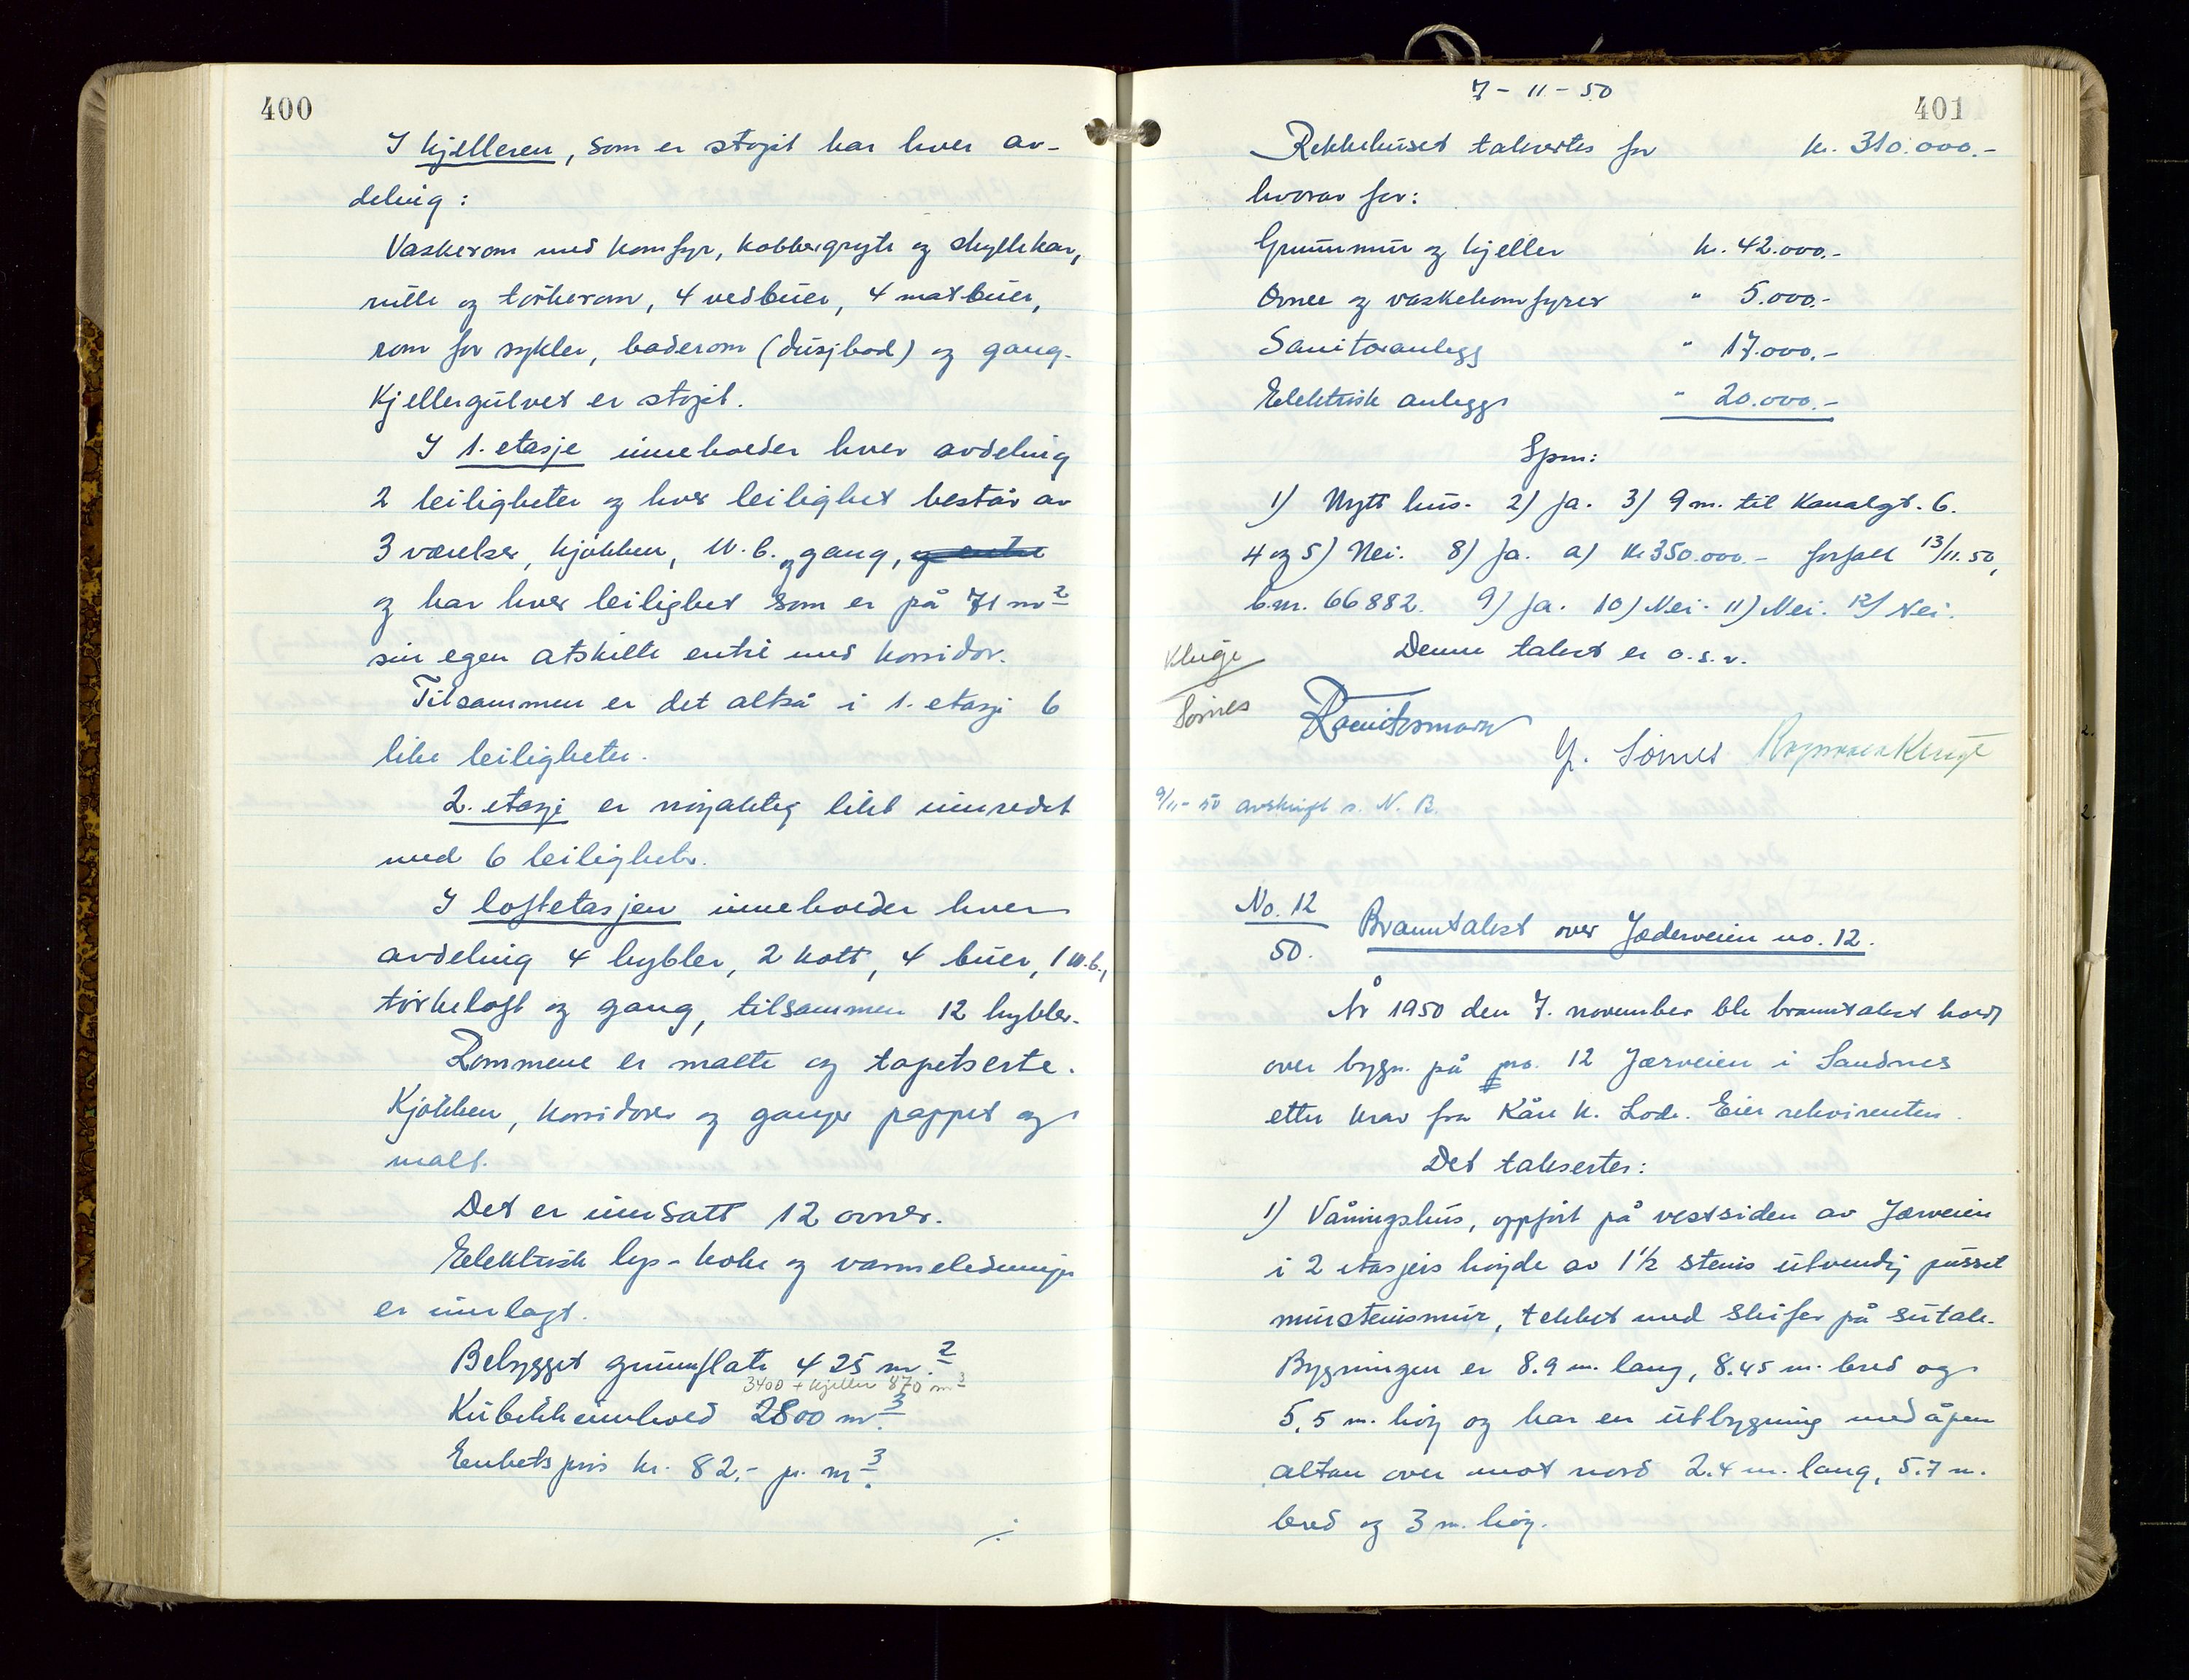 400
I kjelleren, som er støpt har hver av-
deling:
Vaskerom med komfyr, kobbergryte og skyllekar,
rulle og tørkerom, 4 vedbuer, 4 matbuer,
rom for sykler, baderom (dusjbad) og gang.
Kjellergulvet er støpt.
I 1. etasje inneholder hver avdeling
2 leiligheter og hver leilighet består av
3 værelser, kjøkken, W.C. og gang, og entre
og har hver leilighet som er på 71 m²
sin egen atskilte entré med korridor.
Tilsammen er det altså i 1. etasje 6
like leiligheter.
2. etasje er nøyaktig likt innredet
med 6 leiligheter.
I loftetasjen inneholder hver
avdeling 4 hybler, 2 kott, 4 buer, 1 W.C.,
tørkeloft og gang, tilsammen 12 hybler.
Rommene er malte og tapetserte.
Kjøkken, korridorer og ganger pappet og
malt.
Det er innsatt 12 ovner.
Elektrisk lys- koke og varmeledninger
er innlagt.
Bebygget grunnflate 425 m²
3400 + kjeller 870 m³
Kubikkinnhold 2800 m³.
Enhetspris kr. 82,- pr. m³.
./.
7-11-50
401
Rekkehuset takseres for kr. 310.000.-
hvorav for:
Grunnmur og kjeller kr. 42.000,-
Ovner og vaskekomfyrer " 5.000.-
Sanitæranlegg " 17.000.-
Elektrisk anlegg " 20.000.-
Spm:
1) Nytt hus. 2) Ja. 3) 9 m. til Kanalgt. 6.
4 og 5) Nei. 8) Ja. a) kr 350.000.- forfall 13/11.50,
b.nr. 66882. 9) Ja. 10) Nei. 11) Nei. 12) Nei.
Denne takst er o.s.v.
Kluge
Sømes
G. Sømes Kluge
9/11-50 avskrift s. N. B.
No. 12
50.
Branntakst over Jæderveien no. 12.
År 1950 den 7. november ble branntakst holdt
over bygn. på no. 12 Jærveien i Sandnes
etter krav fra Kåre K. Lode. Eier rekvirenten.
Det takseres:
1) Våningshus, oppført på vestsiden av Jærveien
i 2 etasjers høyde av 1½ stens utvendig pusset
murstensmur, tekket med skifer på sutak.
Bygningen er 8.9 m. lang, 8.45 m. bred og
5.5 m. høy og har en utbygning med åpen
altan over mot nord 2.4 m. lang, 5.7 m.
bred og 3 m. høy.